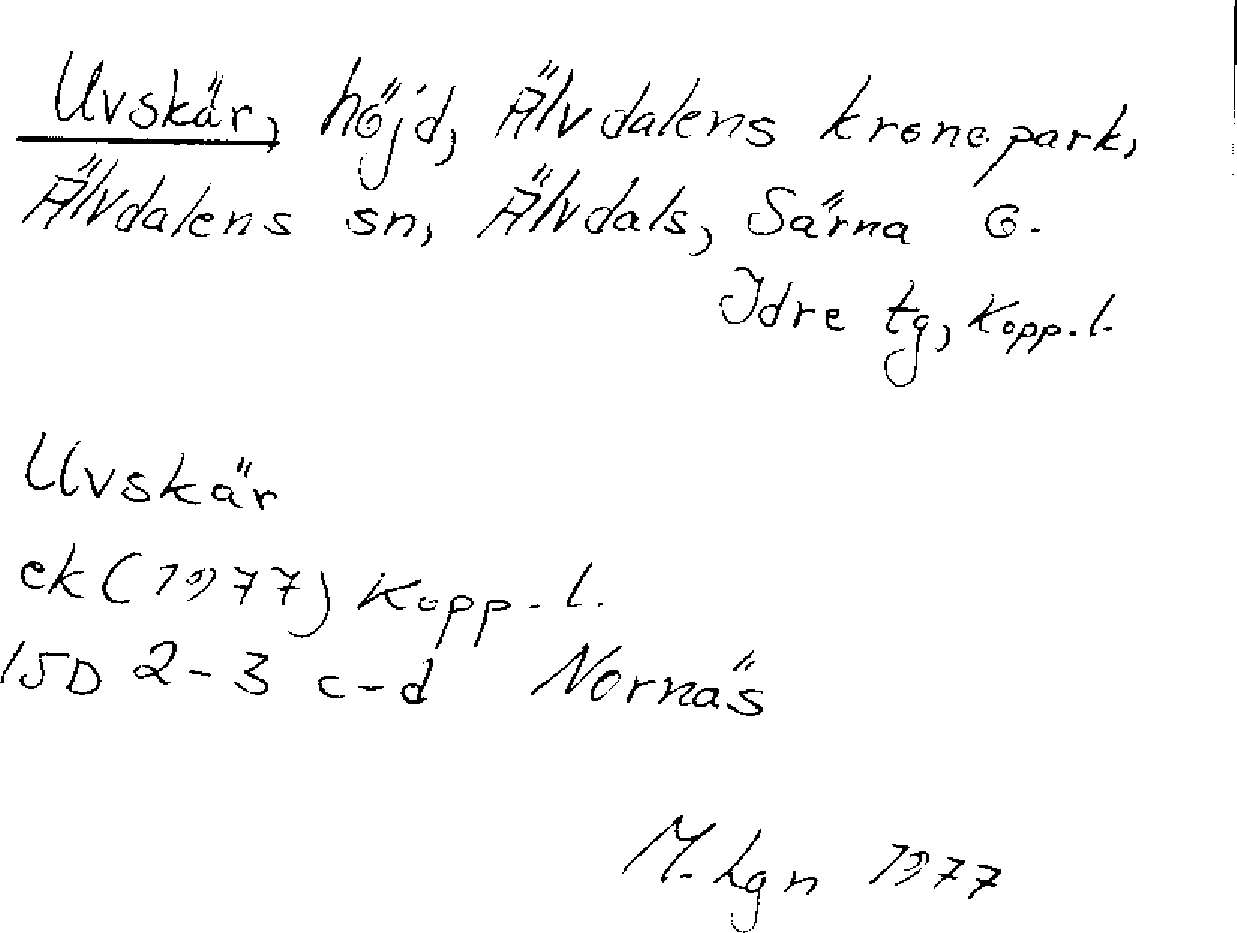 Uvskär, höjd, Älvdalens kronopark,
Älvdalens sn, Älvdals, Särna o.
Idre tg, Kopp. l.
Uvskär
ek (1977) Kopp. l.
15D 2-3 c-d Nornäs
M. Lgn 1977